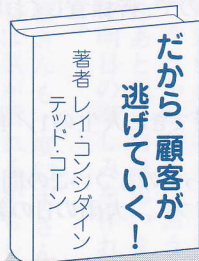 だから、顧客が
逃げていく！
著者 レイ・コンシダイン
テッド・コーン